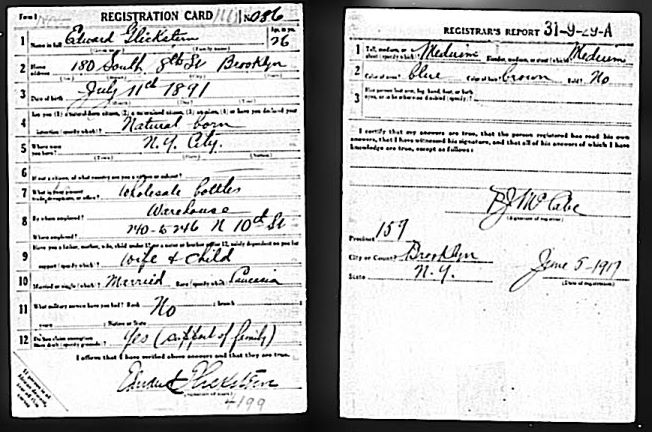 Form 1 REGISTRATION CARD No. 86
1 Name in full Edward Glickstein Age, in yrs. 26
(Family name)
2 Home address 180 South 8th St Brooklyn
3 Date of birth July 11th 1891
(Month) (Day) (Year)
4 Are you (1) a natural-born citizen, (2) a naturalized citizen, (3) an alien, (4) or have you declared your
intention (specify which)? Natural born
5 Where were you born? N.Y. City.
(Town) (State) (Nation)
6 If not a citizen, of what country are you a citizen or subject?
7 What is your present trade, occupation, or office? Wholesale bottles
8 By whom employed? Warehouse
Where employed? 240-246 N 10th St
9 Have you a father, mother, wife, child under 12, or a sister or brother under 12, solely dependent on you for
support (specify which)? Wife & Child
10 Married or single (which)? Married Race (specify which)? Caucasian
11 What military service have you had? Rank No ; branch
years ; Nation or State
12 Do you claim exemption from draft (specify grounds)? Yes (support of family)
I affirm that I have verified above answers and that they are true.
Edward Glickstein
4199
REGISTRAR'S REPORT 31-9-29-A
1 Tall, medium, or short (specify which)? Medium Slender, medium, or stout (which)? Medium
2 Color of eyes? blue Color of hair? brown Bald? No
3 Has person lost arm, leg, hand, foot, or both
eyes, or is he otherwise disabled (specify)?
I certify that my answers are true, that the person registered has read his own
answers, that I have witnessed his signature, and that all of his answers of which I have
knowledge are true, except as follows:
McCabe
(Signature of registrar)
Precinct 159
City or County Brooklyn
State N.Y.
June 5-1917
(Date of registration)